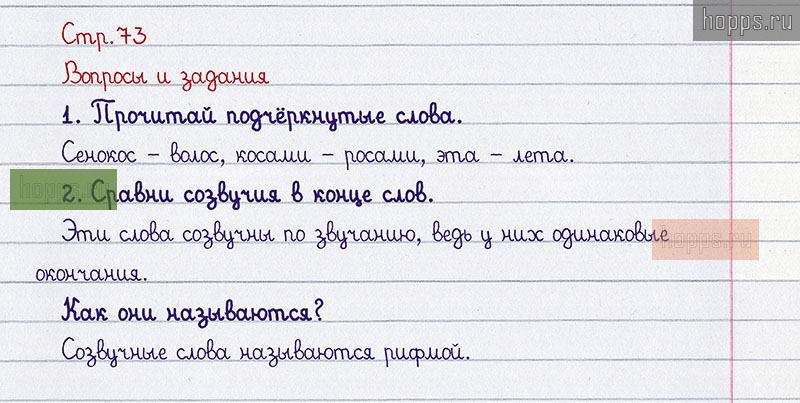 hopps.ru
Стр.73
Вопросы и задания
1. Прочитай подчёркнутые слова.
Сенокос – волос, косами – росами, эта – лета.
hopps.ru
2. Сравни созвучия в конце слов.
Эти слова созвучны по звучанию, ведь у них одинаковые
hopps.ru
окончания.
Как они называются?
Созвучные слова называются рифмой.